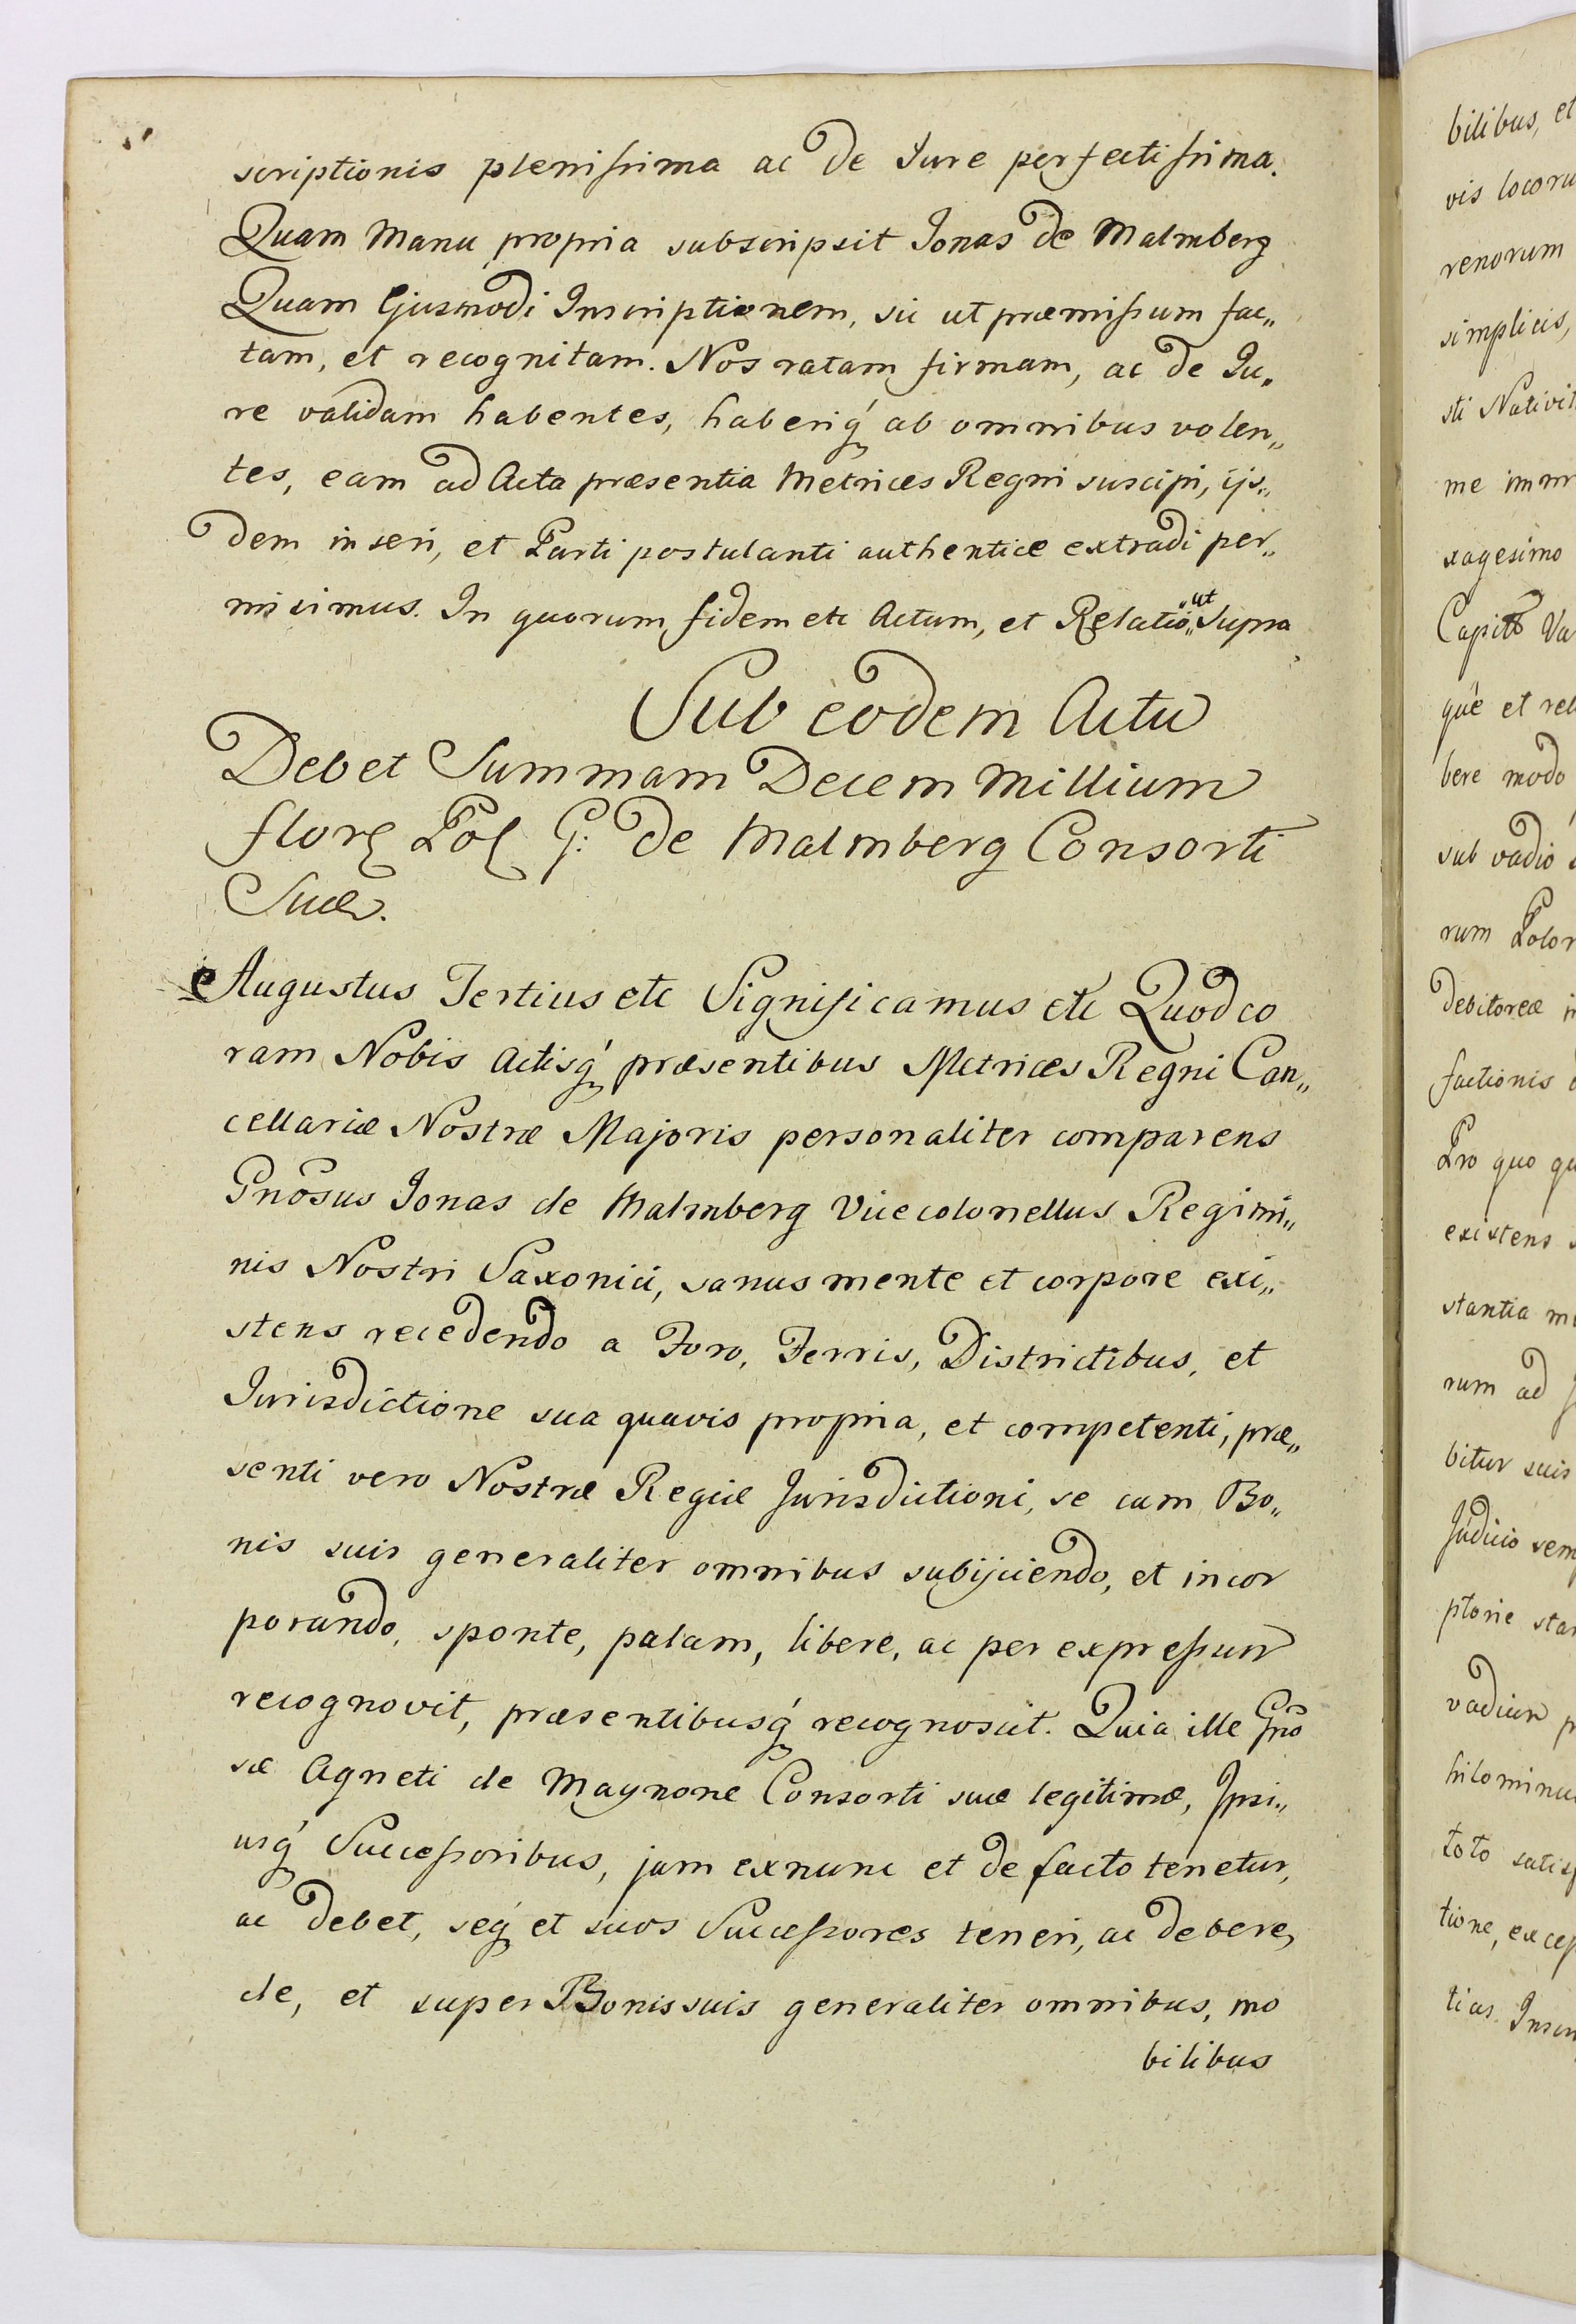 scriptionis plenissima ac de Iure perfectissima.
Quam Manu propria subscripsit Ionas de Malmberg
Quam Ejusmodi Inscriptionem, sic ut præmissum fac„
tam, et recognitam. Nos ratam firmam, ac de Iu„
re validam habentes, haberiq́ ab omnibus volen„
tes, eam ad Acta præsentia Metrices Regni suscipi, ijs„
dem inseri, et Parti postulanti authentice extradi per„
misimus. In quorum fidem etc Actum, et Relatio „ut Supra
Sub eodem Actu
Debet Summam Decem Millium
flor Pol G: de Malmberg Consorti
Suæ.
Augustus Tertius etc Significamus etc Quod co
ram Nobis Actisq́ præsentibus Metrices Regni Can„
cellariæ Nostræ Majoris personaliter comparens
Gnosus Ionas de Malmberg Vicecolonellus Regimi„
nis Nostri Saxonici, sanus mente et corpore exi„
stens recedendo a Foro, Terris, Districtibus, et
Iurisdictione sua quavis propria, et competenti, præ„
senti vero Nostræ Regiæ Jurisdictioni, se cum Bo„
nis suis generaliter omnibus subijciendo, et incor
porando, sponte, palam, libere, ac per expressum
recognovit, præsentibusq́ recognoscit. Quia ille Gno
sæ Agneti de Maynone Consorti suæ legitimæ, Ipsi„
usq́ Successoribus, jam exnunc et de facto tenetur,
ac debet, seq́ et suos Successores teneri, ac debere,
de, et super Bonis suis generaliter omnibus, mo
bilibus
bilibus, et
vis locoru
renorum
simplicis,
sti Nativit
me imm
xagesimo
Capit Va
que et rel
bere modo
sub vadio
rum Polon
debitoreæ in
factionis
Pro quo qu
existens
stantia m
rum ad
bitur suis
Judicio sem
ptorie star
vadium p
hilominu
toto satisf
tione, excep
tias. Inscri